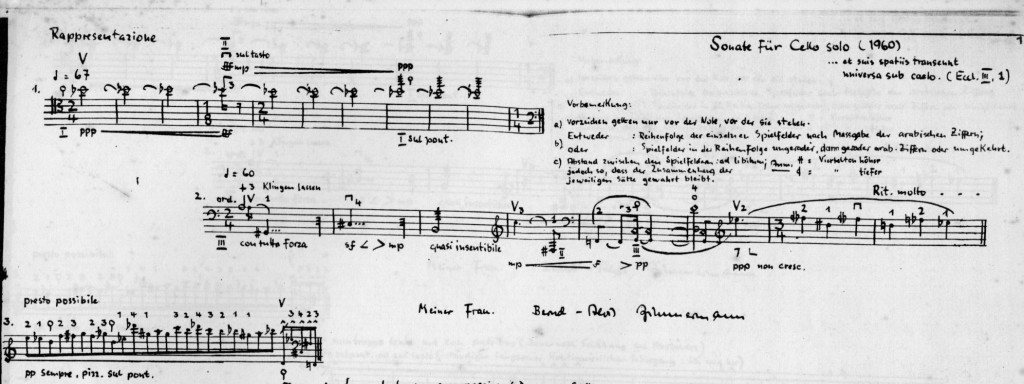 1
Rappresentazione
Sonate für Cello solo (1960)
... et suis spatiis transeunt
universa sub caelo. (Eccl. III, 1)
V
II
sul tasto
♩ = 67
mp
ppp
3
1.
1 8
2 4
1 4
2
I ppp
ff
I sul pont.
Vorbemerkung:
a) Vorzeichen gelten nur vor der Note, vor der sie stehen.
b) Entweder : Reihenfolge der einzelnen Spielfelder nach Massgabe der arabischen Ziffern;
oder : Spielfelder in der Reihenfolge ungerader, dann gerader arab. Ziffern oder umgekehrt.
c) Abstand zwischen den Spielfeldern: ad libitum;
jedoch so, dass der Zusammenhang der
jeweiligen Sätze gewahrt bleibt.
Anm. = Viertelton höher
= " tiefer
♩ = 60
+3 Klingen lassen
Rit. molto - - -
2. ord. V 1
4
V3
1
2
3
4
V2
2 1
1 2 1
2 4
3 4
III con tutta forza
sf < > mp
quasi insensibile
mp
II
sf
III
> pp
ppp non cresc.
presto possibile
Meiner Frau. Bernd-Alois Zimmermann
3.
2 1 0 2 3 2 3 0 1 4 1 2 4 3 2 1 1
V
3 4 2 3
pp sempre, pizz. sul pont.